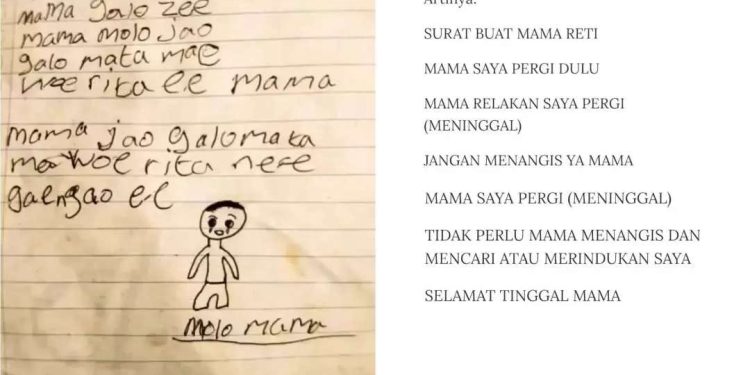 mama galo zee
mama molo jao
galo mata mae
woe rita ee mama
mama jao galo mata
mae woe rita nee
gaengao ee
molo mama
Artinya:
SURAT BUAT MAMA RETI
MAMA SAYA PERGI DULU
MAMA RELAKAN SAYA PERGI
(MENINGGAL)
JANGAN MENANGIS YA MAMA
MAMA SAYA PERGI (MENINGGAL)
TIDAK PERLU MAMA MENANGIS DAN
MENCARI ATAU MERINDUKAN SAYA
SELAMAT TINGGAL MAMA